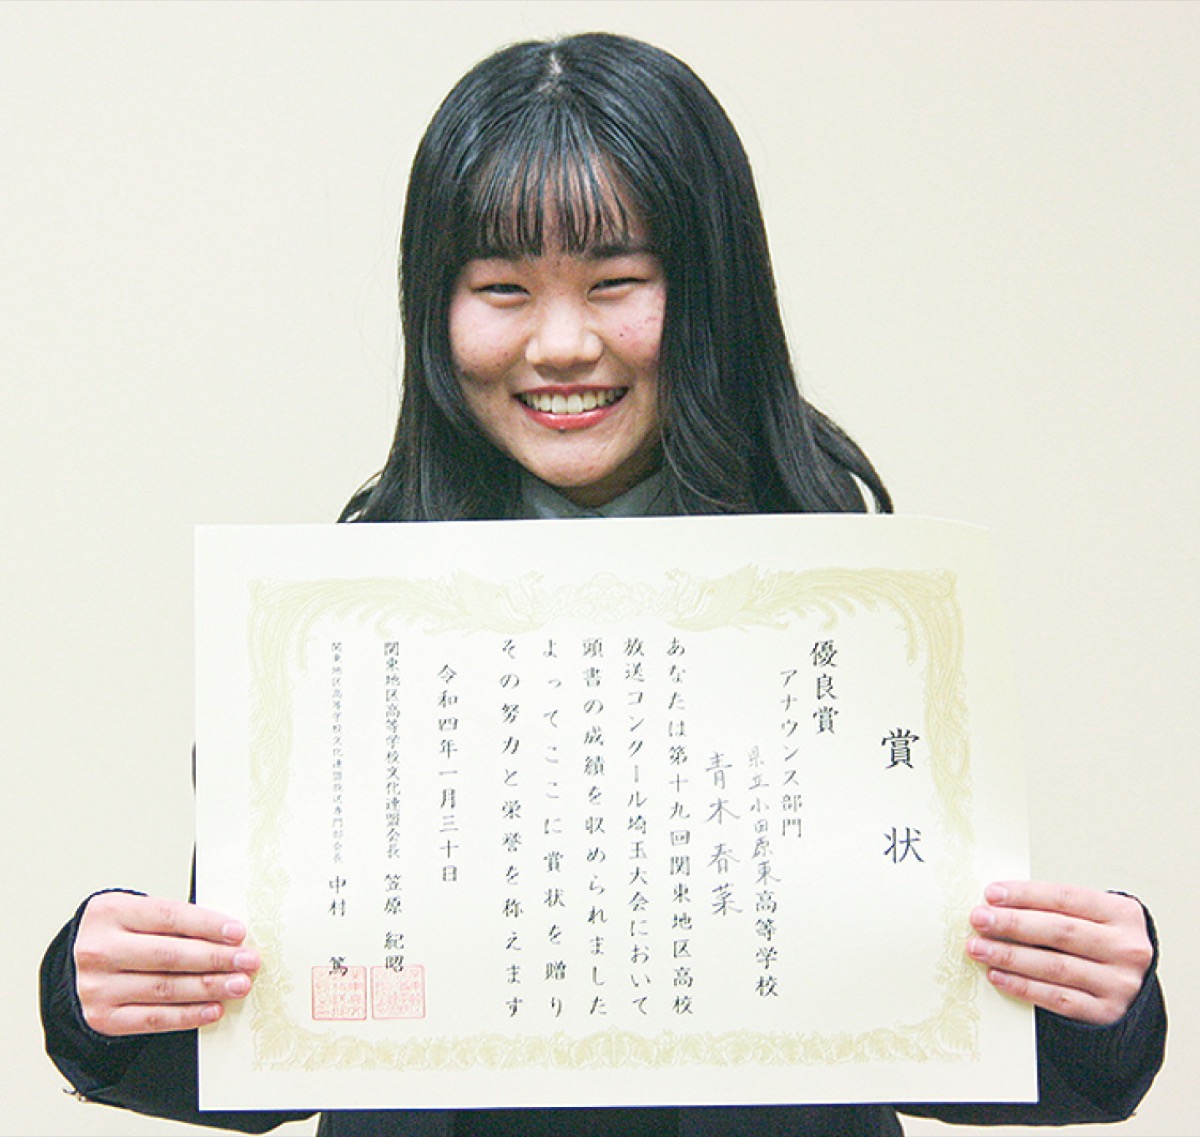 賞状
優良賞
アナウンス部門
県立小田原東高等学校
青木春菜
あなたは第十九回関東地区高校
放送コンクール埼玉大会において
頭書の成績を収められました
よってここに賞状を贈り
その努力と栄誉を称えます
令和四年一月三十日
関東地区高等学校文化連盟会長 笠原 紀昭
関東地区高等学校文化連盟放送専門部会長 中村 篤